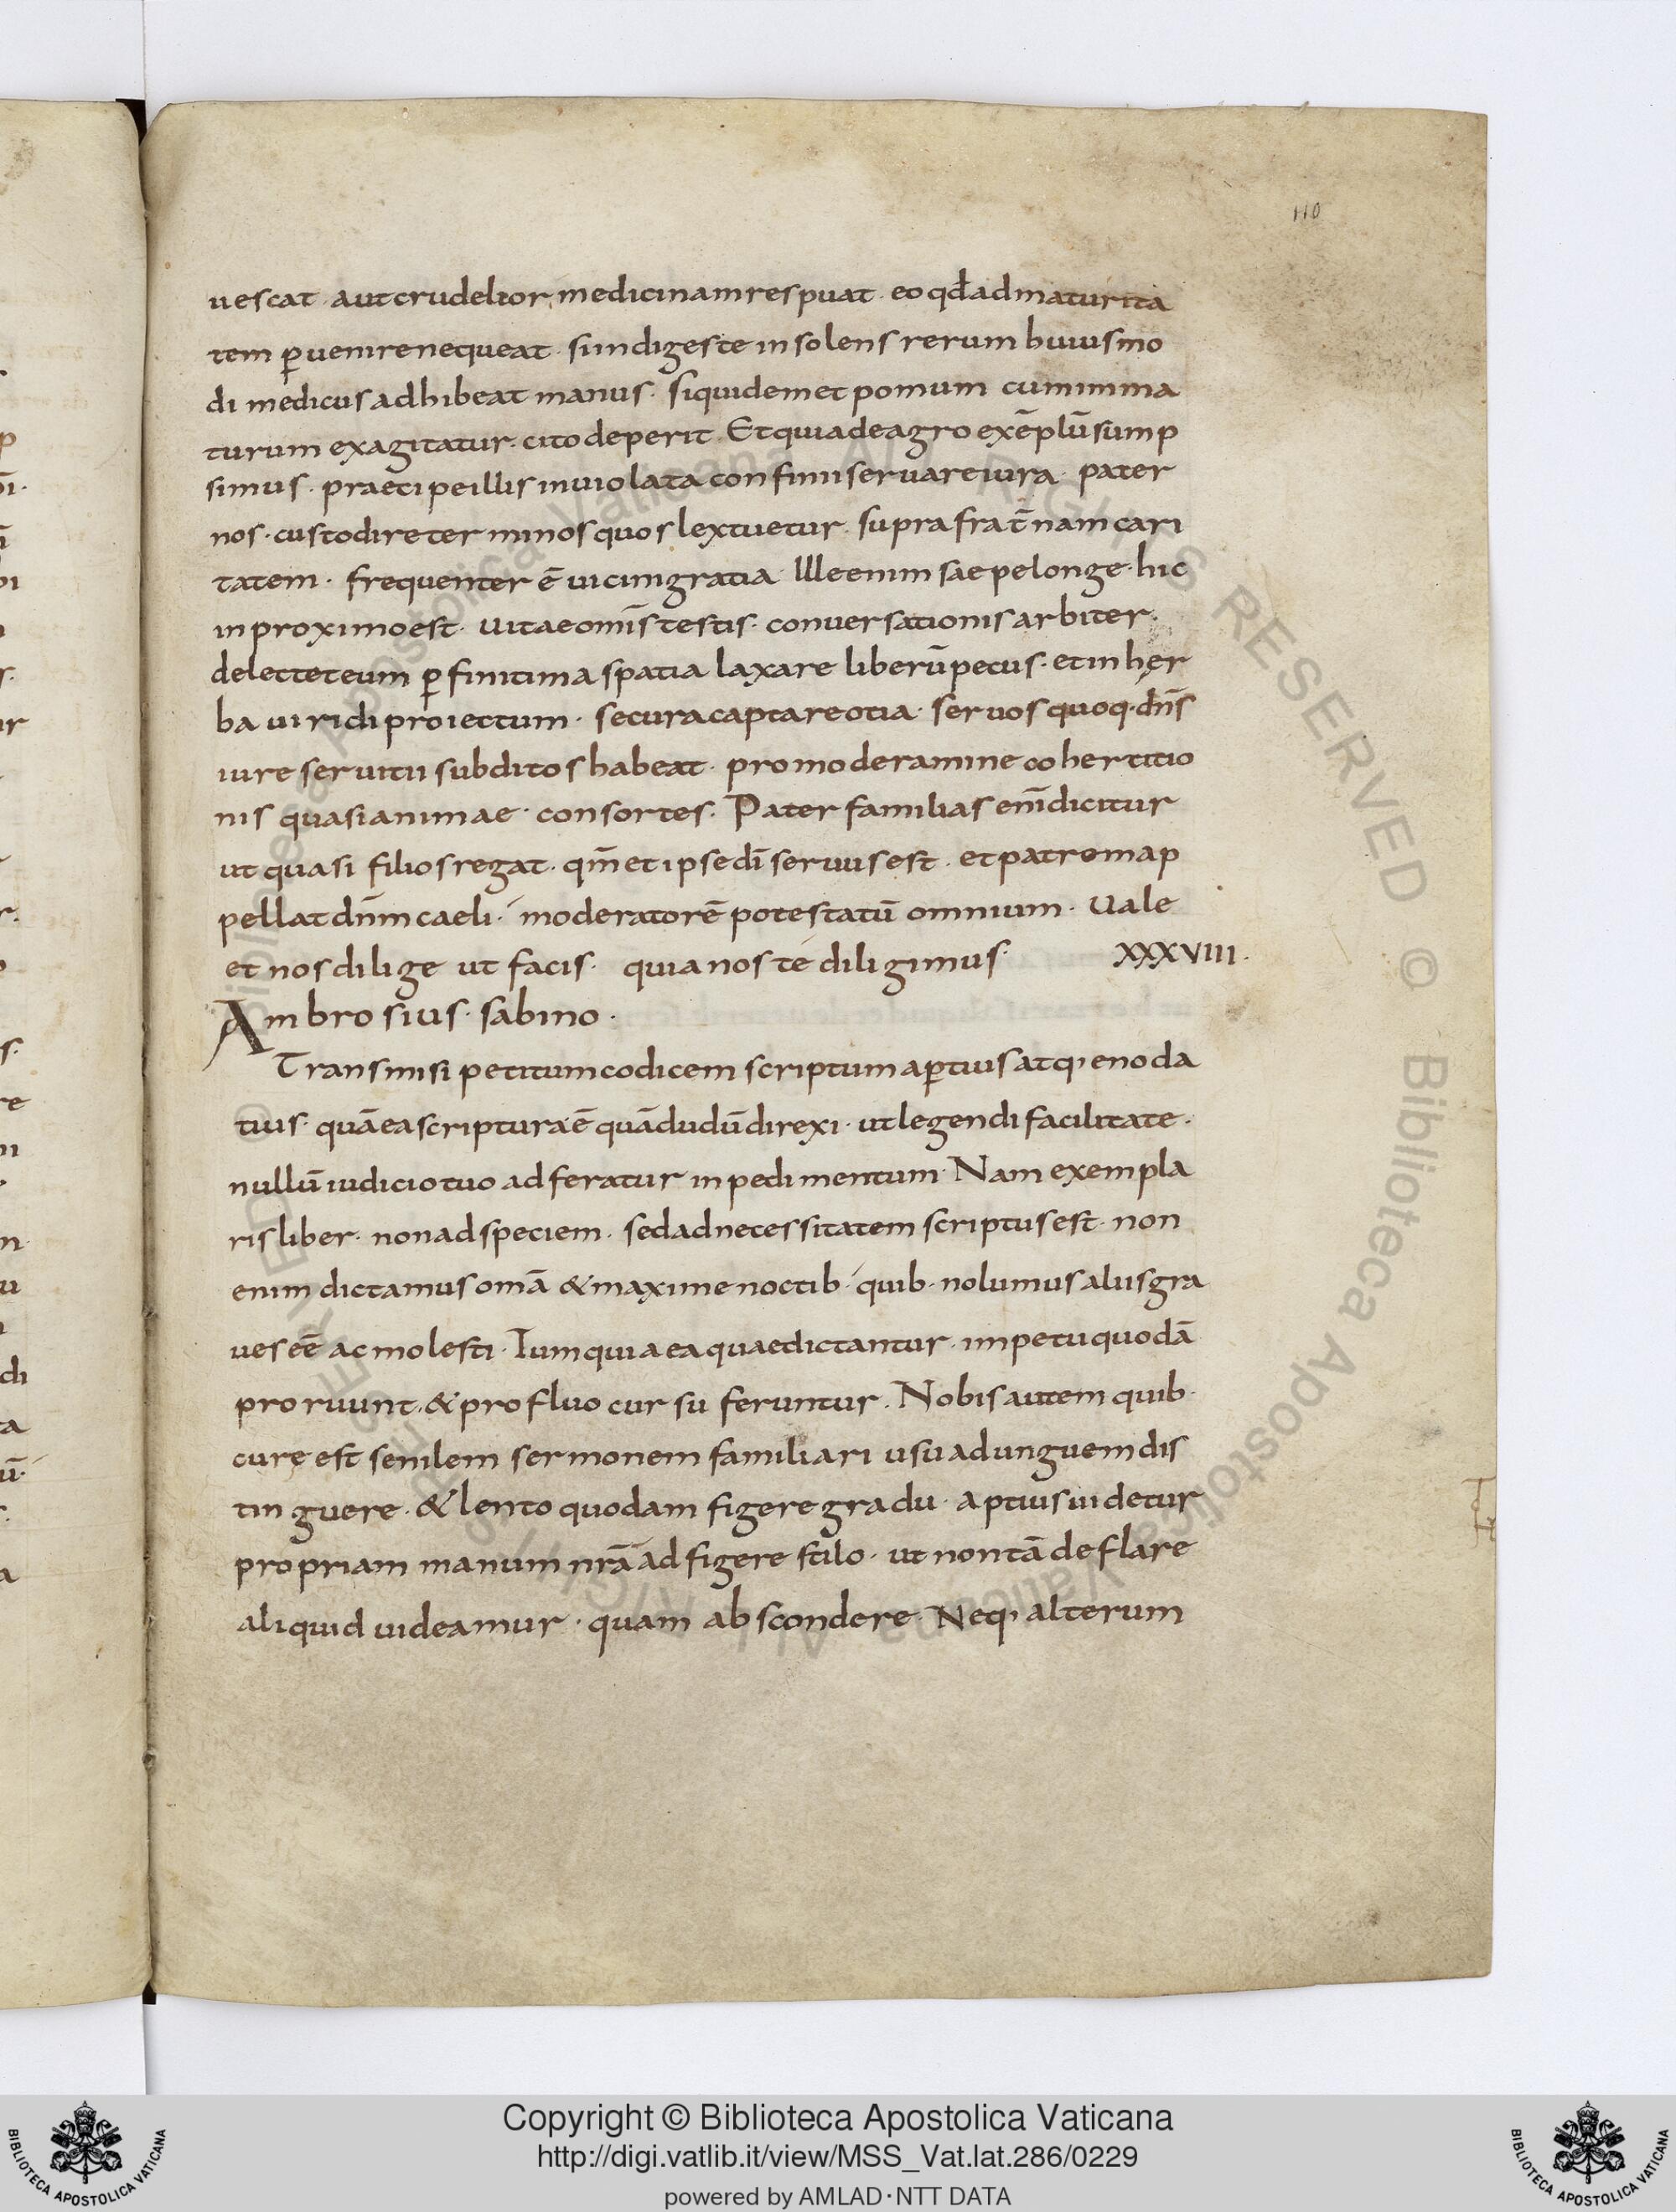 110
uescat · aut crudelior medicinam respuat · eo qđ ad maturita
tem ꝑuenire nequeat · si indigeste insolens rerum huiusmo
di medicus adhibeat manus · siquidem et pomum cum inma
turum exagitatur · cito deperit · Et quia de agro exēplū sump
simus · praecipe illis inuiolata confinii seruare iura · pater
nos · custodire terminos quos lex tuetur · supra frat̄nam cari
tatem · frequenter ē uicini gratia · Ille enim saepe longe · hic
in proximo est · uitae om̄is testis · conuersationis arbiter ·
delectet eum ꝑ finitima spatia laxare liberū pecus · et in her
ba uiridi proiectum · secura captare otia · seruos quoq· dn̄s
iure seruitii subditos habeat · pro moderamine cohertitio
nis quasi animae · consortes · Pater familias eni̅ dicitur
ut quasi filios regat · qm̄ et ipse dī seruus est · et patrem ap
pellat dn̄m caeli · moderatorē potestatū omnium · Uale
et nos dilige ut facis · quia nos te diligimus · XXXVIII ·
Ambrosius · sabino ·
Transmisi petitum codicem scriptum aꝑtius atq; enoda
tius · quā ea scriptura ē quā dudū direxi · ut legendi facilitate ·
nullū iudicio tuo adferatur inpedimentum · Nam exempla
ris liber · non ad speciem · sed ad necessitatem scriptus est · non
enim dictamus om̄a & maxime noctib· quib· nolumus aliis gra
ues eē ac molesti · Tum quia ea quae dictantur · impetu quodā
proruunt · & profluo cursu feruntur · Nobis autem quib·
curę est senilem sermonem familiari usu ad unguem dis
tinguere · & lento quodam figere gradu · aptius uidetur
propriam manum nr̄ā adfigere stilo · ut non tā deflare
aliquid uideamur · quam abscondere · Neq; alterum
Copyright © Biblioteca Apostolica Vaticana
http://digi.vatlib.it/view/MSS_Vat.lat.286/0229
powered by AMLAD·NTT DATA